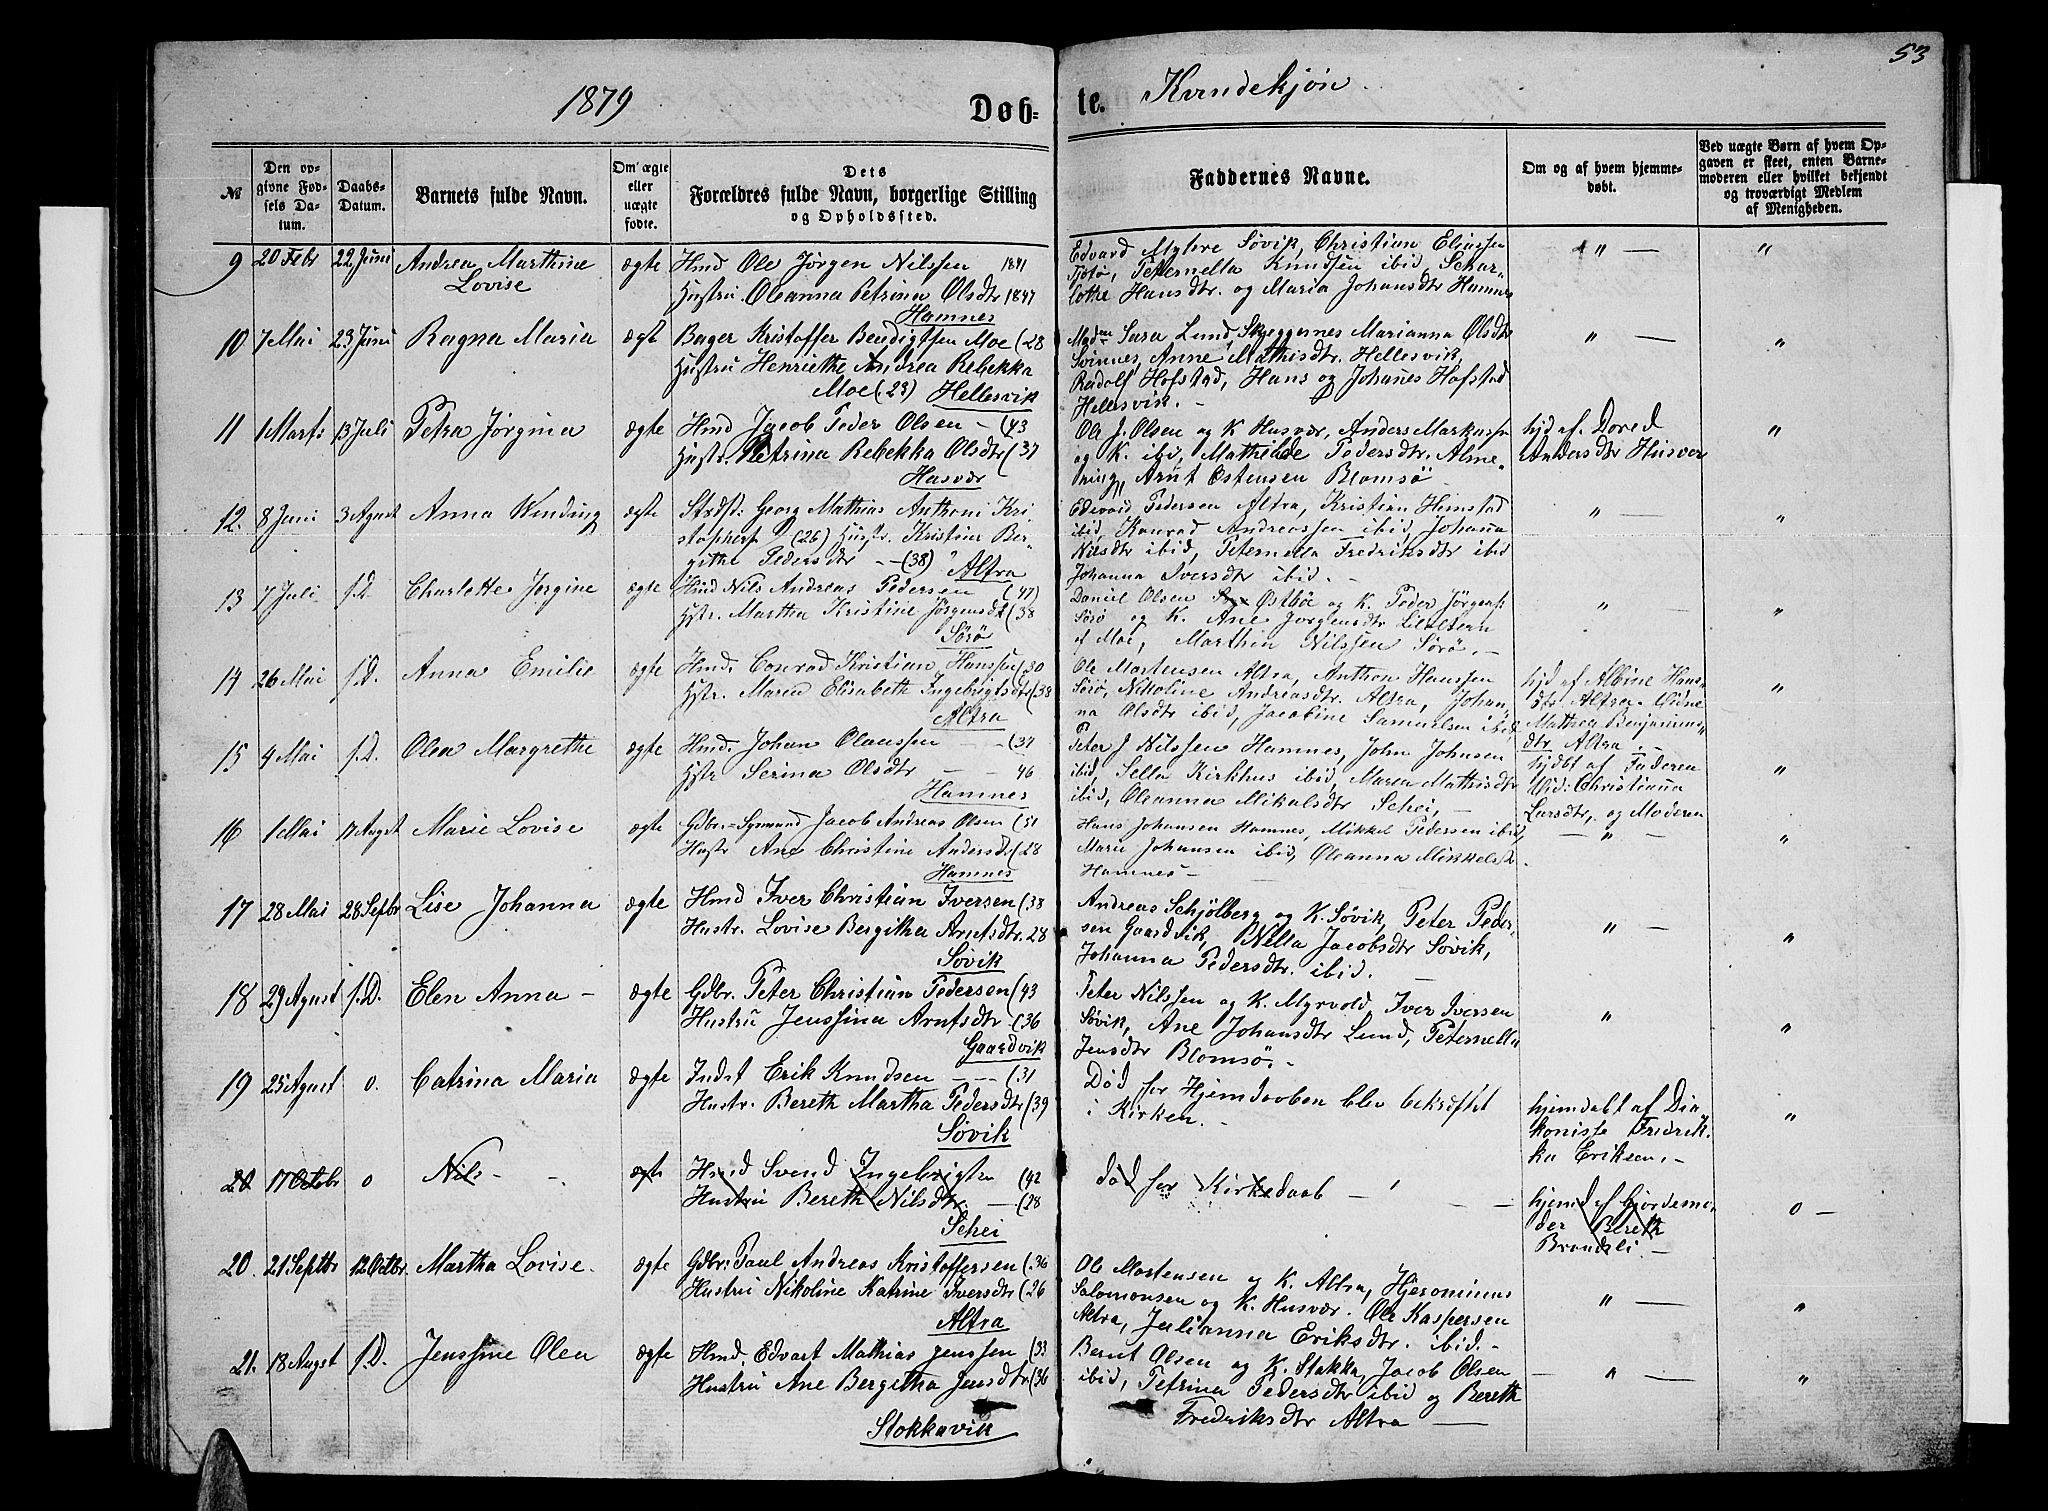 53
1879
Døb=
te.
Kvindekjøn
№
Den op-
givne Fød-
sels Da-
tum.
Daabs-
Datum.
Barnets fulde Navn.
Om ægte
eller
uægte
fødte.
Dets
Forældres fulde Navn, borgerlige Stilling
og Opholdssted.
Faddernes Navne.
Om og af hvem hjemme-
døbt.
Ved uægte Børn af hvem Op-
gaven er skeet, enten Barne-
moderen eller hvilket bekjendt
og troværdigt Medlem
af Menigheden.
9 20 Febr 22 Juni Andrea Marthine
Lovise
ægte Hmd Ole Jørgen Nilssen 1841
Hustru Oleanna Petrina Olsdtr 1847
Hamnes
Edvard Myhre Søvik, Christian Eliassen
Tjøtø, Petternella Knudsen ibid Schar-
lotte Hansdtr. og Maria Johansdtr Hamnes
" — "
10 7 Mai 23 Juni Ragna Maria
ægte Bager Kristoffer Bendigtsen Moe (28
Hustru Henriethe Andrea Rebekka
Moe (.23) Hellesvik
Mdm Sara Lund, Skjeggernes Marianna Olsdtr
Svinnes, Anne Mathisdtr. Hellesvik,
Rudolf Hofstad, Hans og Johanes Hofstad
Hellesvik. -
" — "
11 1 Marts 13 Juli Petra Jørgina
ægte Hmd Jacob Peder Olsen - (43
Hustr. Petrina Rebekka Olsdtr (37
Husvær
Ole J. Olsen og K Husvær, Anders Markussn
og K. ibid, Mathilde Pedersdtr. Alme-
ning, Arnt Ostensen Blomsø
hjd af. Dored
Andersdtr Husvær
"
12. 8 Juni 3 Agust Anna Winding
ægte Strdsd: Georg Mathias Anthoni Kri-
stophers (26) Hustr. Kristine Ber-
githe Pedersdtr - -(38) Altra
Edevard Pedersen Altra, Kristian Hemstad
ibid, Konrad Andreassen ibid, Johanna
Nilsdtr ibid, Peternella Fredriksdtr ibid
Johanna Iversdtr ibid. -
" — "
13 7 Juli s.D. Charlotte Jørgine
ægte Hmd Nils Andreas Pedersen (47)
Hstr. Martha Kristine Jørgensdt (38
Sørø
Daniel Olsen Østbø og K. Peder Jørgens
Sørø og K. Ane Jørgensdtr
af Moe, Marthin Nilssen Sørø. -
" — "
14 26 Mai s.D. Anna Emilie
ægte Hmd. Conrad Kristian Hanssen (30
Hstr. Maren Elisabeth Ingebrigtsdtr (38
Altra
Ole Mortensen Altra, Anthon Hanssen
Sørø, Nikoline Andreasdtr. Altra, Johan-
na Olsdtr ibid, Jacobine Samuelsen ibid,
hjd af Albine Hans-
dtr Altra. Vidne
Mathea Benjamins-
dtr Altra. -
"
15 4 Mai s.D. Olea Margrethe
ægte Hmd. Johan Olaussen - - (37
Hstr Serina Olsdtr — - 46
Hamnes
Peter J Nilssen Hamnes, John Johnsen
ibid, Sella Kirkhus ibid, Maren Mathisdtr
ibid, Oleanna Mikalsdtr Schei, -
hjdbt af Faderen
Vid: Christianna
Larsdtr, og Moderen
"
16 1 Mai 17 Augst Marie Lovise
ægte Gdbr. Jacob Andreas Olsen (51
Hustr Ane Christine Andersd. (28
Hamnes
Hans Johansen Hamnes, Mikkel Pedersen ibid,
Marie Johansen ibid, Oleanna Mikkelsdtr
Hamnes -
— " — "
17 28 Mai 28 Septbr Lise Johanna
ægte Hmd Iver Christian Iversen (38
Hustr. Lovise Bergitha Arntsdtr. 28
Søvik
Andreas Schjølberg og K. Søvik, Peter Peder-
sen Gaardvik, Nella Jacobsdtr Søvik,
Johanna Pedersdtr. ibid.
" — "
18 29 Agust s.D. Elen Anna -
ægte Gdbr. Peter Christian Pedersen (43
Hustru Jenssina Arntsdtr (36
Gaardvik
Peter Nilssen og K. Myrvold, Iver Iversen
Søvik, Ane Johansdtr Lund, Peternella
Jensdtr Blomsø. -
" "
19 25 Agust 0. Catrina Maria
ægte Indst Erik Knudsen - - (.31
Hustr. Bereth Martha Pedersdtr (39
Søvik
Død før Hjemdaaben blev bekræftet
i Kirken. -
hjemdøbt af Dia-
konisse Fredrik-
ka Eriksen. -
"
20 17 Octbr 0 Nils - -
ægte Hmd Svend Ingebrigtsn (42
Hustru Bereth Nilsdtr. — (28
Schei
død før Kirkedaab —
hjemd af Gjordemo-
der Bereth
Brandsli -
0 —
20. 21 Septbr 12 Octbr. Martha Lovise.
ægte Gdbr: Paul Andreas Kristoffersen (.36
Hustru Nikoline Katrine Iversdtr (26
Altra
Ole Mortensen og K. Altra, Hjeronimus
Salomonsen og K. Husvær. Ole Kaspersen
Altra, Julianna Eriksdtr. ibid. -
" — "
21. 18 Augst s.D. Jenssine Olea
ægte Hmd. Edvart Mathias Jenssen (33
Hustru Ane Bergitha Jensdtr (36
Stokkavik
Bernt Olsen og K. Stokka, Jacob Olsen
ibid, Petrina Pedersdtr ibid og Bereth
Fredriksdtr Altra —
— " — "